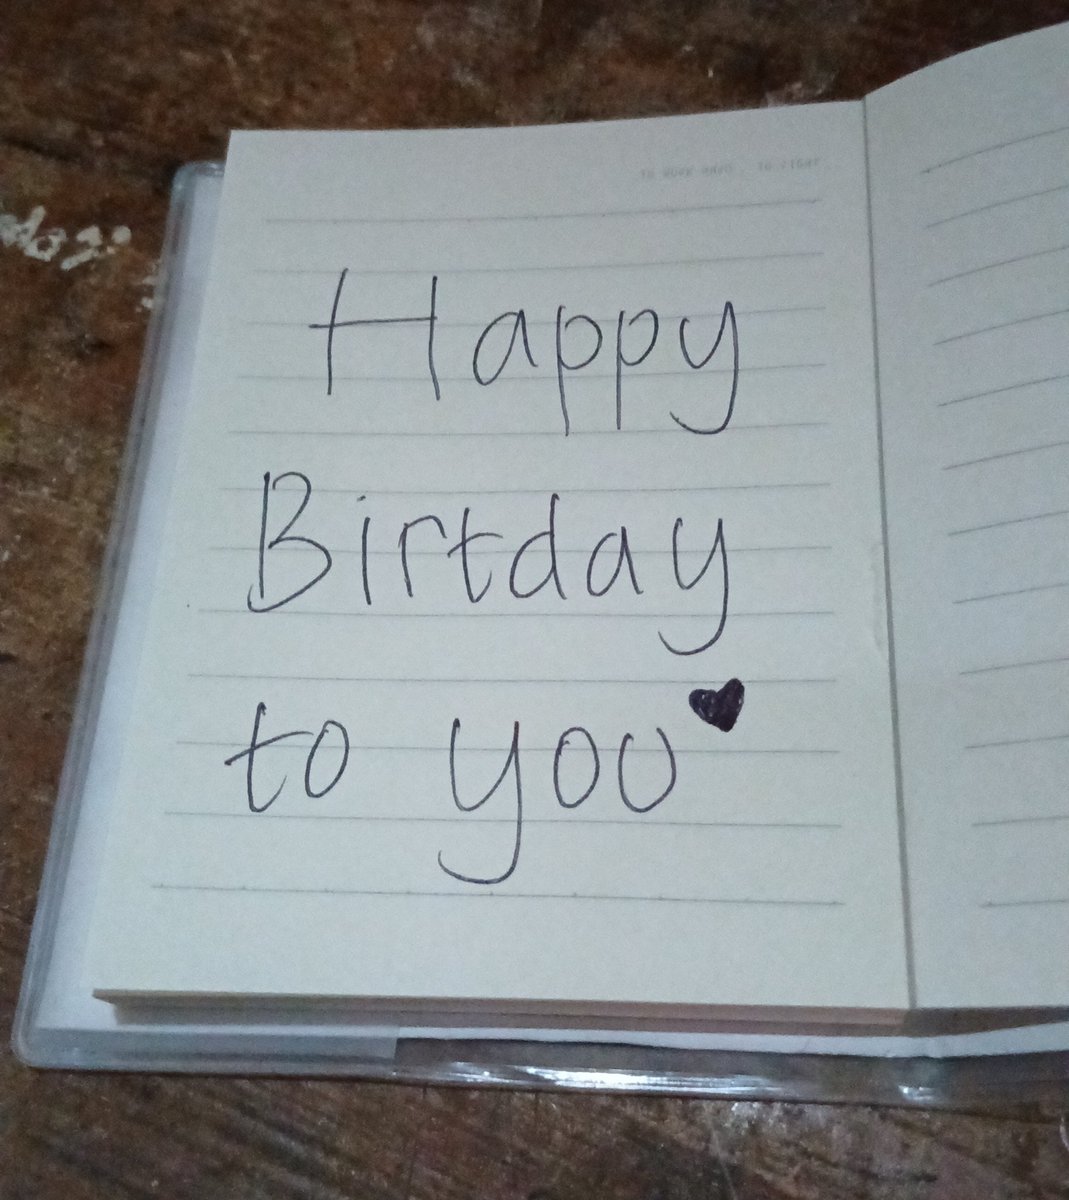 Happy
Birtday
to you♥